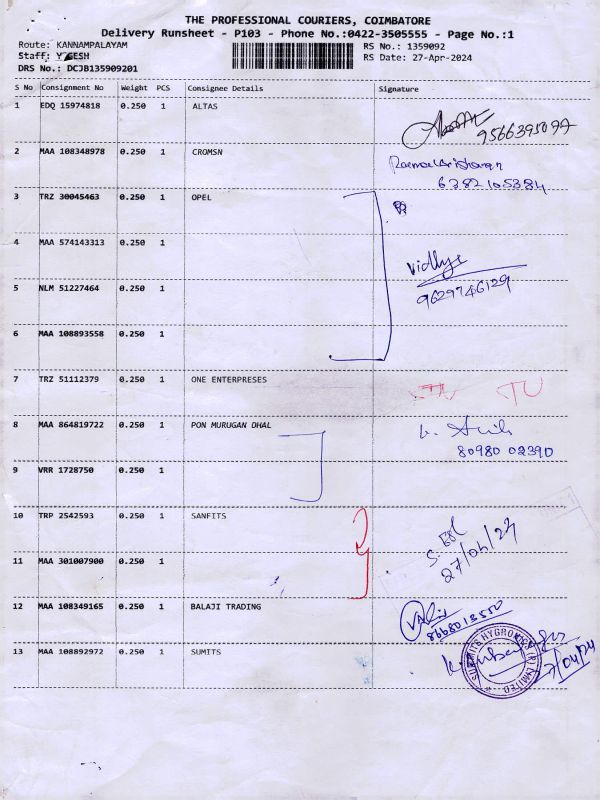 THE PROFESSIONAL COURIERS, COIMBATORE
Delivery Runsheet - P103 - Phone No.:0422-3505555 - Page No.:1
Route: KANNAMPALAYAM
RS No.: 1359092
Staff: YOGESH
RS Date: 27-Apr-2024
DRS No.: DCJB135909201
S No Consignment No Weight PCS Consignee Details Signature
1 EDQ 15974818 0.250 1 ALTAS
9566395077
2 MAA 108348978 0.250 1 CROMSN
6382105384
3 TRZ 30045463 0.250 1 OPEL
4 MAA 574143313 0.250 1
Vidhya
5 NLM 51227464 0.250 1
9629746129
6 MAA 108893558 0.250 1
7 TRZ 51112379 0.250 1 ONE ENTERPRESES
8 MAA 864819722 0.250 1 PON MURUGAN DHAL
80980 02390
9 VRR 1728750 0.250 1
10 TRP 2542593 0.250 1 SANFITS
27/04/24
11 MAA 301007900 0.250 1
12 MAA 108349165 0.250 1 BALAJI TRADING
8668013550
13 MAA 108892972 0.250 1 SUMITS
SUMITS HYGRONICS (P) LIMITED